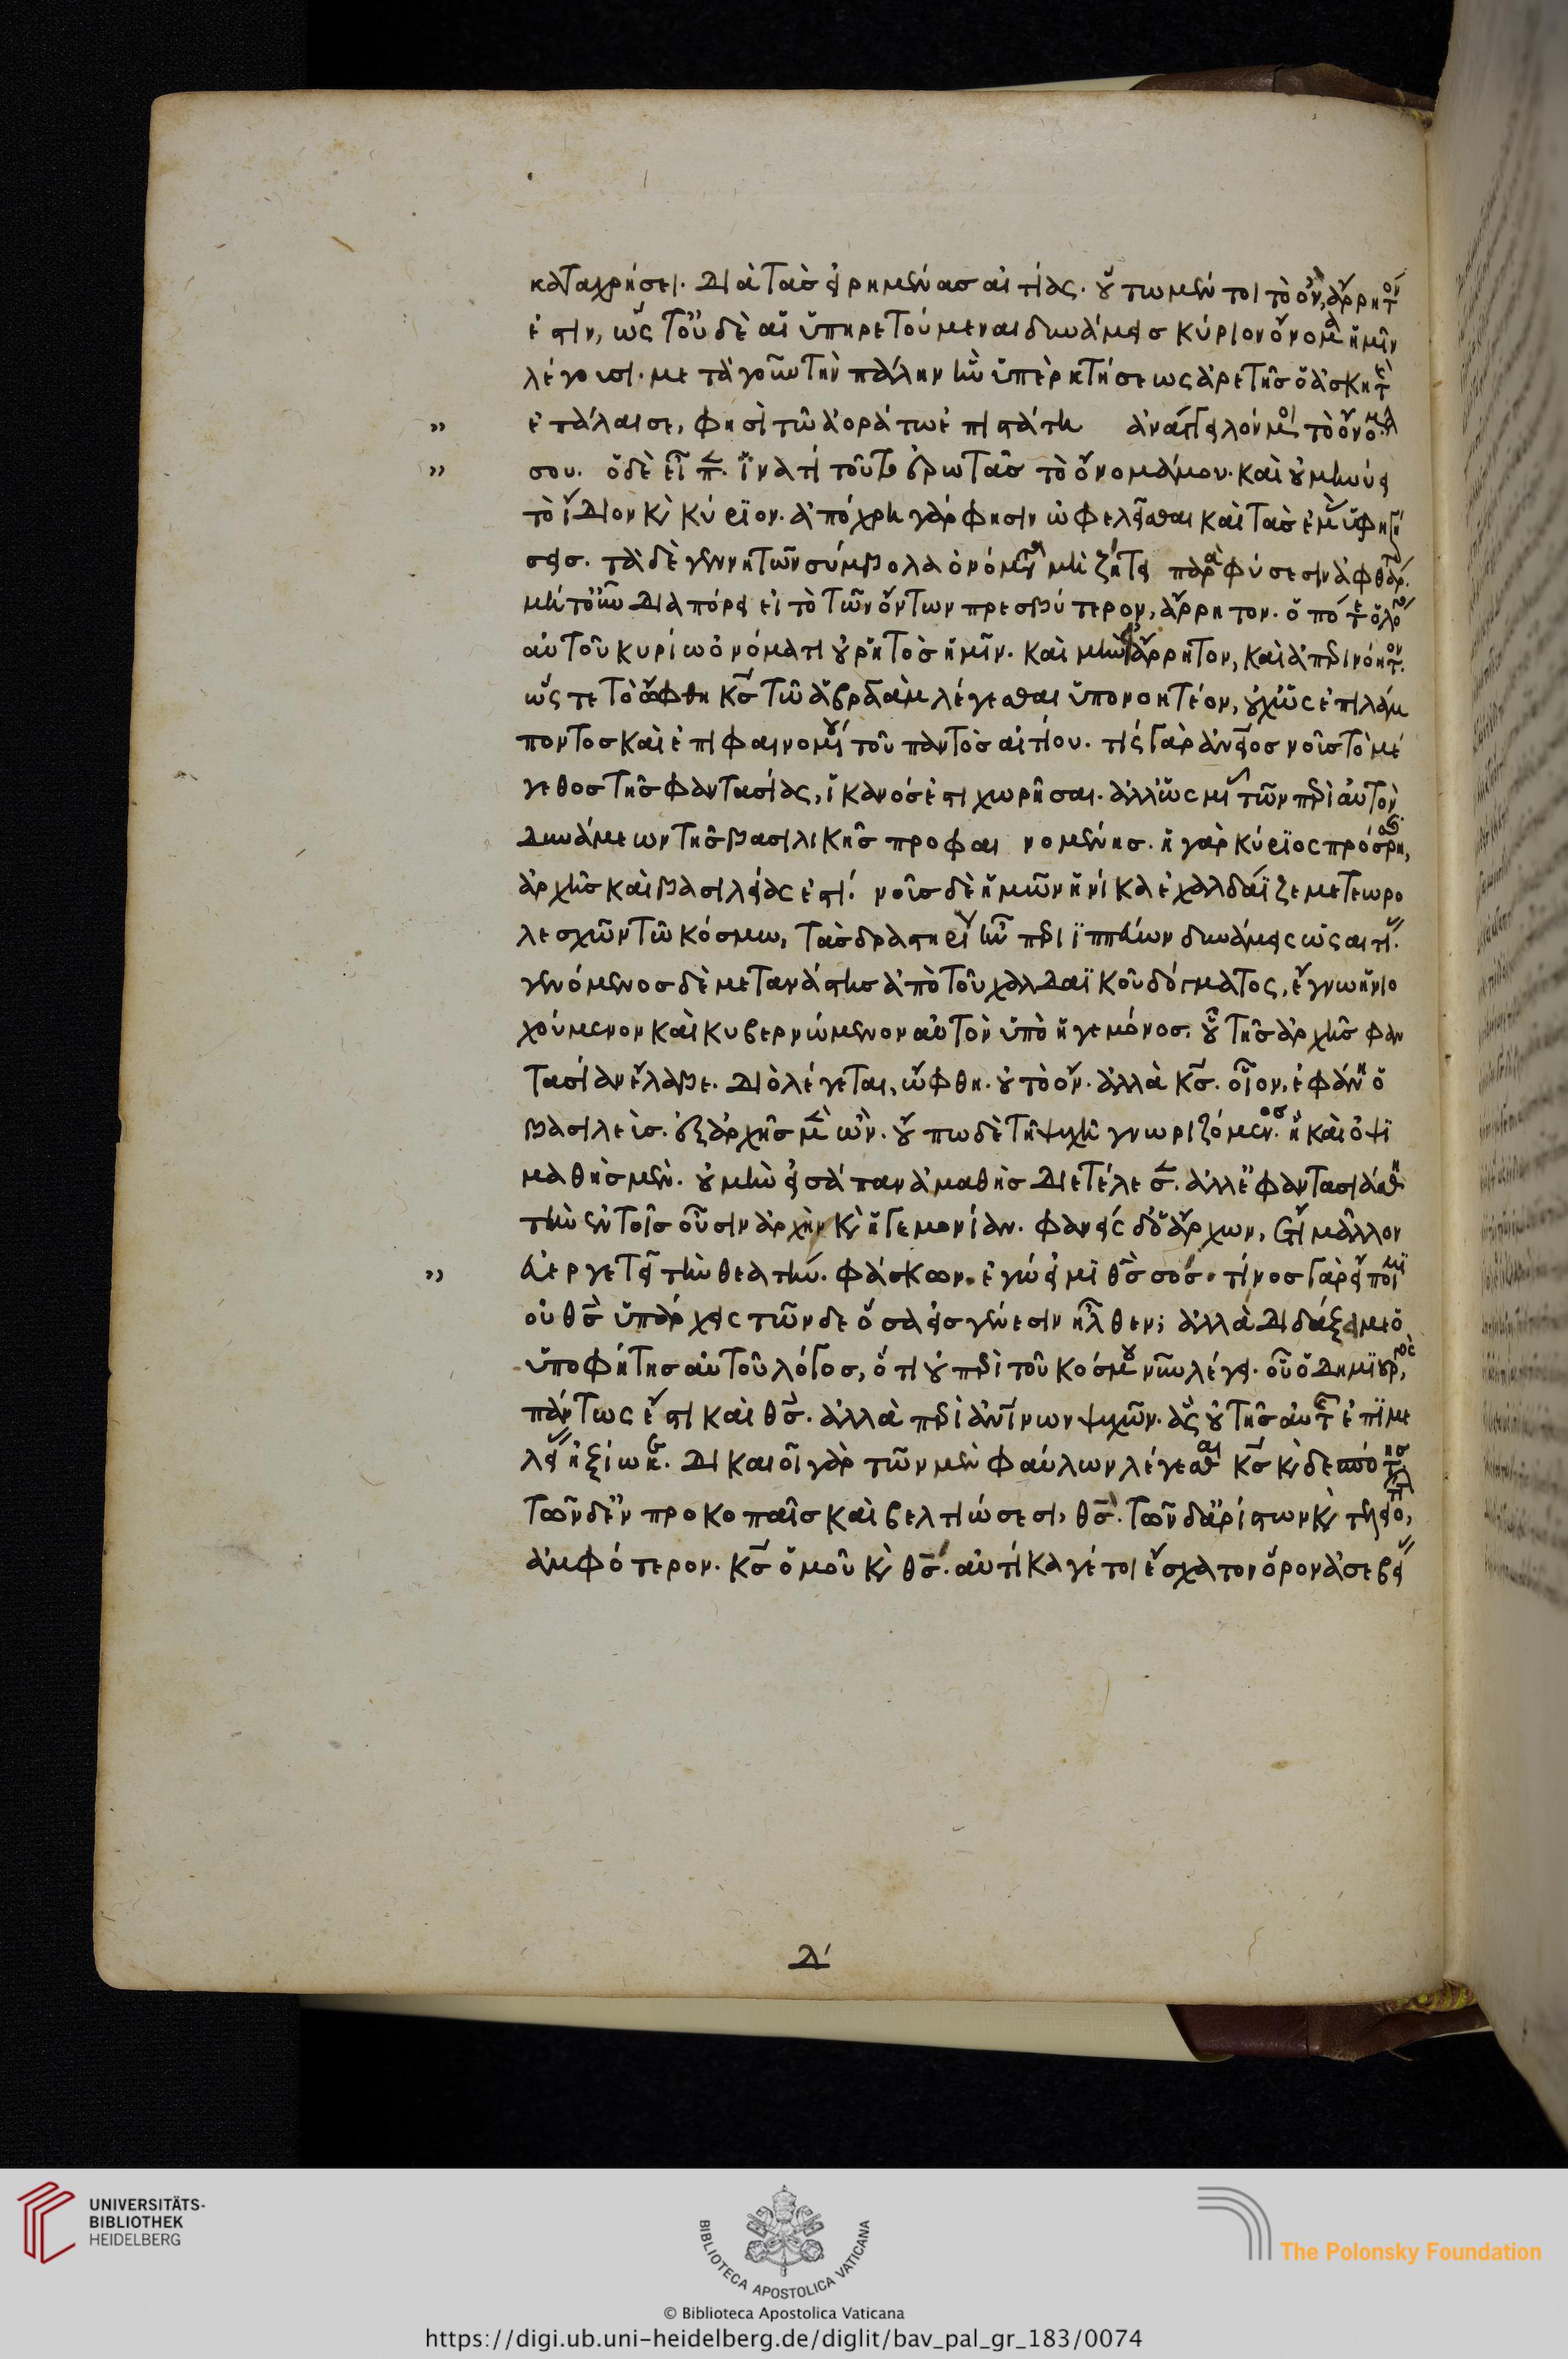 καταχρήσει. διὰ τὰσ εἰρημένασ αἰτίας. οὕτω μέντοι τὸ ὂν, ἄρρητον
ἐστιν, ὡς τοῦ δὲ αἱ ὑπηρετούμεναι δυνάμεισ κύριον ὄνομα ἡμῖν
λέγουσι. μετὰ γοῦν τὴν πάλην ἣν ὑπὲρ κτήσεως ἀρετῆσ ὁ ἀσκητὴ
" ἐπάλαισε, φησὶ τῶ ἀοράτω ἐπιστάτη ἀνάγγειλόν μοι τὸ ὄνομα
" σου. ὁ δὲ εἶπ. ἵνα τί τοῦτο ἐρωτᾶσ τὸ ὄνομά μου. καὶ οὐ μηνύει
τὸ ἴδιον κὶ κύριον. ἀπόχρη γάρ φησιν ὠφελεῖσθαι καὶ τὰσ ἐμ ὑφηγή
σεισ. τὰ δὲ γεννητῶν σύμβολα ὀνόματα μὴ ζήτει παρὰ φύσεσιν ἀφθάρ.
μὴ τοίνυν διαπόρει εἰ τὸ τῶν ὄντων πρεσβύτερον, ἄρρητον. ὁπότε ὁ λό
αὐτοῦ κυρίω ὀνόματι οὐ ρητὸσ ἡμῖν. καὶ μὴν ἄρρητον, καὶ ἀπερινόητον.
ὥςτε τὸ ὤφθη κσ τῶ ἁβραὰμ λέγεσθαι ὑπονοητέον, οὐχ ὡς ἐπιλάμ
ποντοσ καὶ ἐπιφαινομένου τοῦ παντὸσ αἰτίου. τίς γὰρ ἀνθρώπειοσ νοῦσ τὸ μέ
γεθοσ τῆσ φαντασίας, ἱκανόσ ἐστι χωρῆσαι. ἀλλ' ὡς μι τῶν περὶ αὐτὸν
δυνάμεων τῆσ βασιλικῆσ προφαινομένησ. ἡ γὰρ κύριος πρόσρη,
ἀρχῆσ καὶ βασιλείας ἐστί. νοῦσ δὲ ἡμῶν ἡνίκα ἐχαλδάϊζε μετεωρο
λεσχῶν τῶ κόσμω, τὰσ δραστηρί ἣν περι ϊππείων δυνάμεις ὡς αἰτί.
γενόμενοσ δὲ μετανάστησ ἀπὸ τοῦ χαλδαϊκοῦ δόγματος, ἔγνω ἡνιο
χούμενον καὶ κυβερνώμενον αὐτὸν ὑπὸ ἡγεμόνοσ. οὗ τῆσ ἀρχῆσ φαν
τασίαν ἔλαβε. διὸ λέγεται, ὤφθη. οὐ τὸ ὄν. ἀλλὰ κσ. οἷον, ἐφάνη ὁ
βασιλεὺσ. ἐξ ἀρχῆσ μὲ ὢν. οὔπω δὲ τῆ ψυχῆ γνωριζόμενοσ. ἣ καὶ ὀψι
μαθὴσ μὲν. οὐ μὴν εἰσάπαν ἀμαθὴσ διετέλεσ. ἀλλ' ἐφαντασιάθη
τὴν ἐν τοῖσ οὖσιν ἀρχὴν κὶ ἡγεμονίαν. φανεὶς δὲ ὁ ἄρχων, ἔτι μᾶλλον
" εὐεργετεῖ τὴν θεατὴν. φάσκων. ἐγώ εἰμι θσ σοσ. τίνοσ γὰρ εἴποιμι
οὐ θσ ὑπάρχεις τῶνδε ὅσα εἰσ γένεσιν ἦλθεν; ἀλλὰ διδάξει με ὁ
ὑποφήτησ αὐτοῦ λόγοσ, ὅτι οὐ περὶ τοῦ κόσμου νῦν λέγει. οὗ ὁ δημιουργος,
πάντως ἔστι καὶ θσ. ἀλλὰ περὶ ἀνίνων ψυχῶν. ἃς οὐ τῆσ αὐτ ἐπιμε
λεί ἠξίωκεν. δικαιοῖ γὰρ τῶν μὲν φαύλων λέγεσθαι κσ κὶ δεσπότησ
τῶν δ' ἐν προκοπαῖσ καὶ βελτιώσεσι, θσ. τῶν δ' ἀρίστων κὶ τελειο,
ἀμφότερον. κσ ὁμοῦ κὶ θσ. αὐτίκα γέ τοι ἔσχατον ὅρον ἀσεβεί
λ'
UNIVERSITÄTS-
BIBLIOTHEK
HEIDELBERG
BIBLIOTECA APOSTOLICA VATICANA
The Polonsky Foundation
© Biblioteca Apostolica Vaticana
https://digi.ub.uni-heidelberg.de/diglit/bav_pal_gr_183/0074